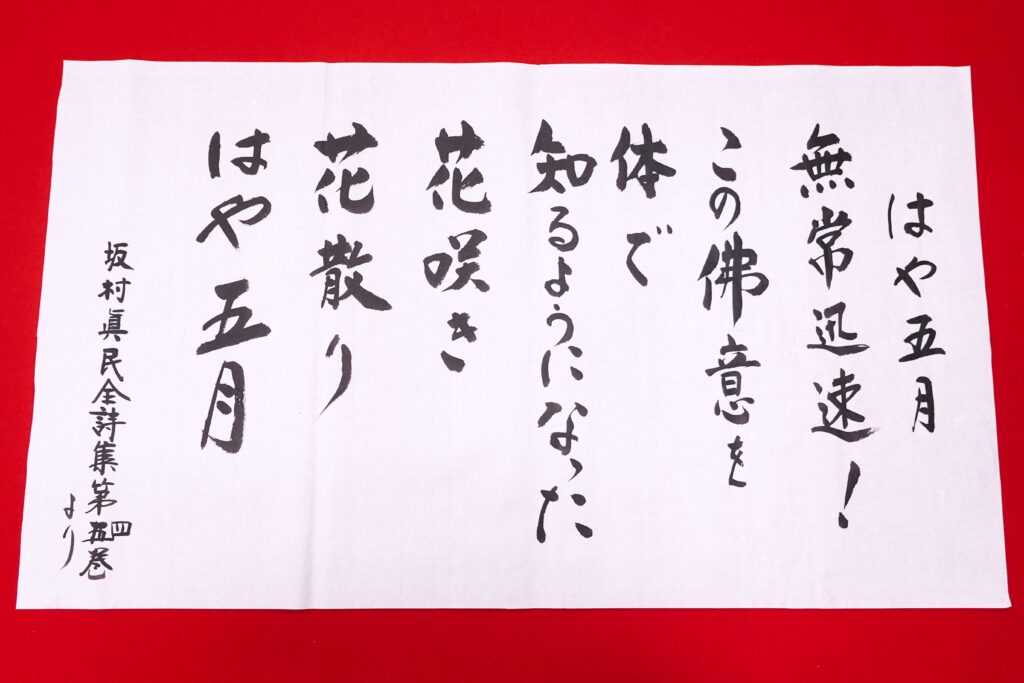 はや五月
無常迅速！
この佛意を
体で
知るようになった
花咲き
花散り
はや五月
坂村眞民全詩集第四巻
より